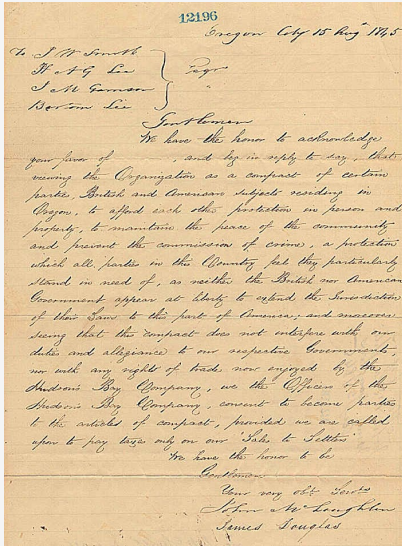 12196
Oregon City 15 Augt 1845
To J W Smith
H A G Lee
J M Garrison
Barton Lee
Esqrs
Gentlemen
We have the honor to acknowledge
your favor of , and beg in reply to say, that
viewing the Organization as a compact of certain
parties, British and American subjects residing in
Oregon, to afford each other protection in person and
property, to maintain the peace of the community
and prevent the commission of crime, a protection
which all parties in this Country feel they particularly
stand in need of, as neither the British nor American
Government appear at liberty to extend the Jurisdiction
of their Laws to this part of America; and moreover
seeing that this compact does not interfere with our
duties and allegiance to our respective Governments,
nor with any rights of trade now enjoyed by the
Hudson's Bay Company, we the Officers of the
Hudson's Bay Company, consent to become parties
to the articles of compact, provided we are called
upon to pay taxes only on our Sales to Settlers
We have the honor to be
Gentlemen
Your very obt Servts
John McLoughlin
James Douglas